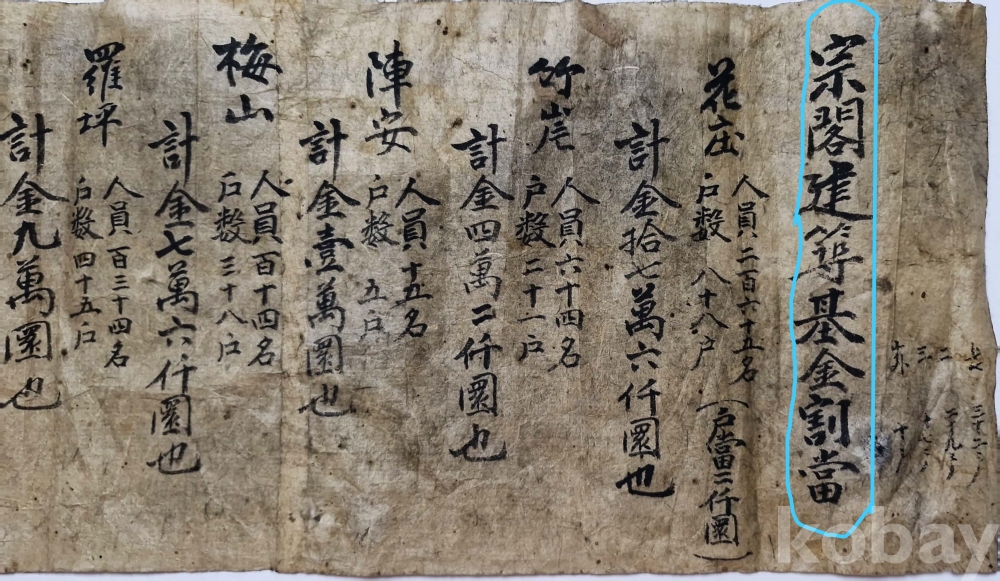 宗閣建築基金割當
花庄
人員 二百六十五名
户数 八十八户 (户當二仟圜)
計金拾七萬六仟圜也
竹
人員六十四名
户数二十一户
計金四萬二仟圜也
陣安
人員十五名
户数 五户
計金壹萬圜也
梅山
人員百十四名
户数三十八户
計金七萬六仟圜也
羅坪
人員百三十四名
户数四十五户
計金九萬圜也
kobay